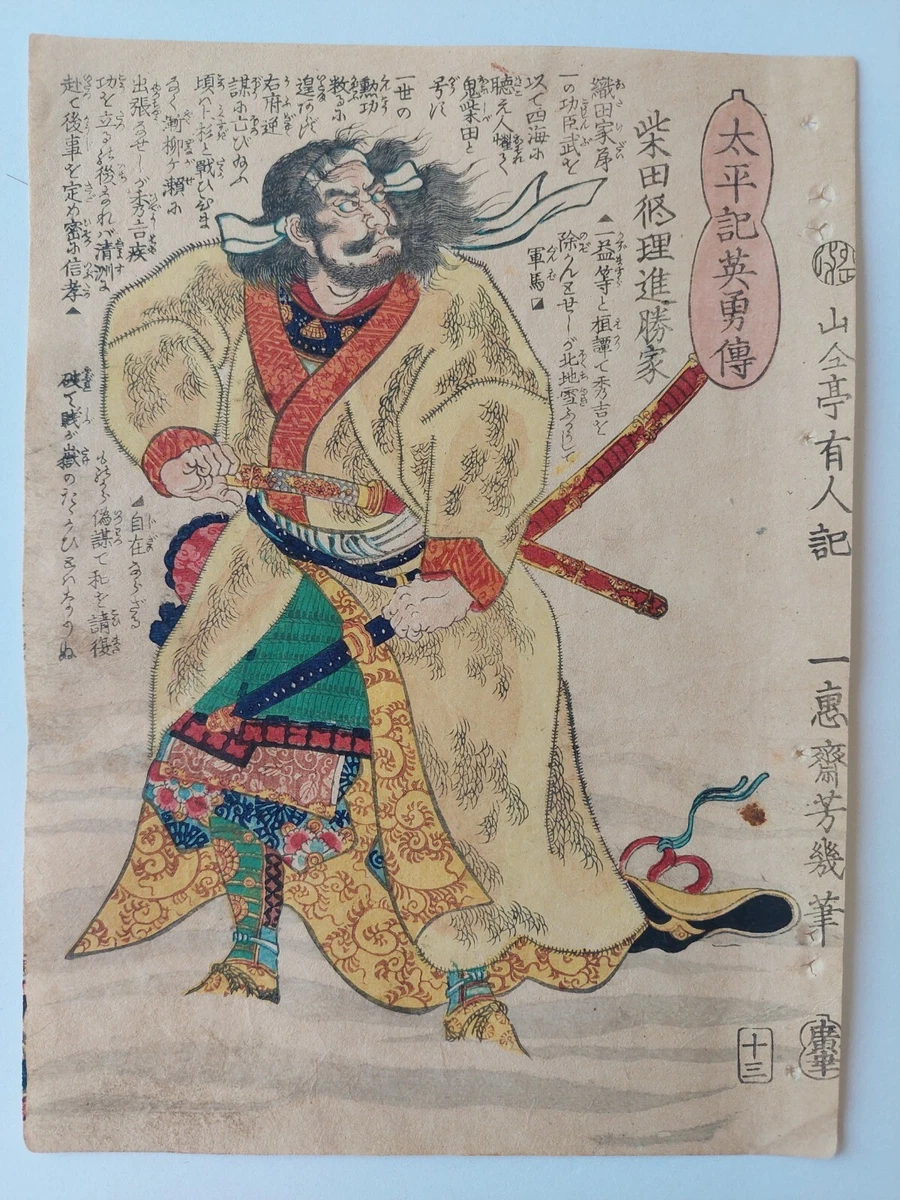 太平記英勇傳
柴田修理進勝家
織田家第
一の功臣武を
以て四海に
聴え人懼て
鬼柴田と
号す
一世の
勲功
数るに
遑あらず
右府逆
謀に亡びゐふ
頃ハ上杉と戦ひひま
なく漸柳ケ瀬に
出張なせしが秀吉疾
功を立るの後なれバ清洲に
赴て後事を定め密に信孝▲
▲一益等と相譚て秀吉を
除かんとせしが北地雪ふかうして
軍馬
自在ならざる
偽謀て和を請後
破て賤が嶽のたゝかひ
山々亭有人記
一惠齋芳幾筆
廣華
十三